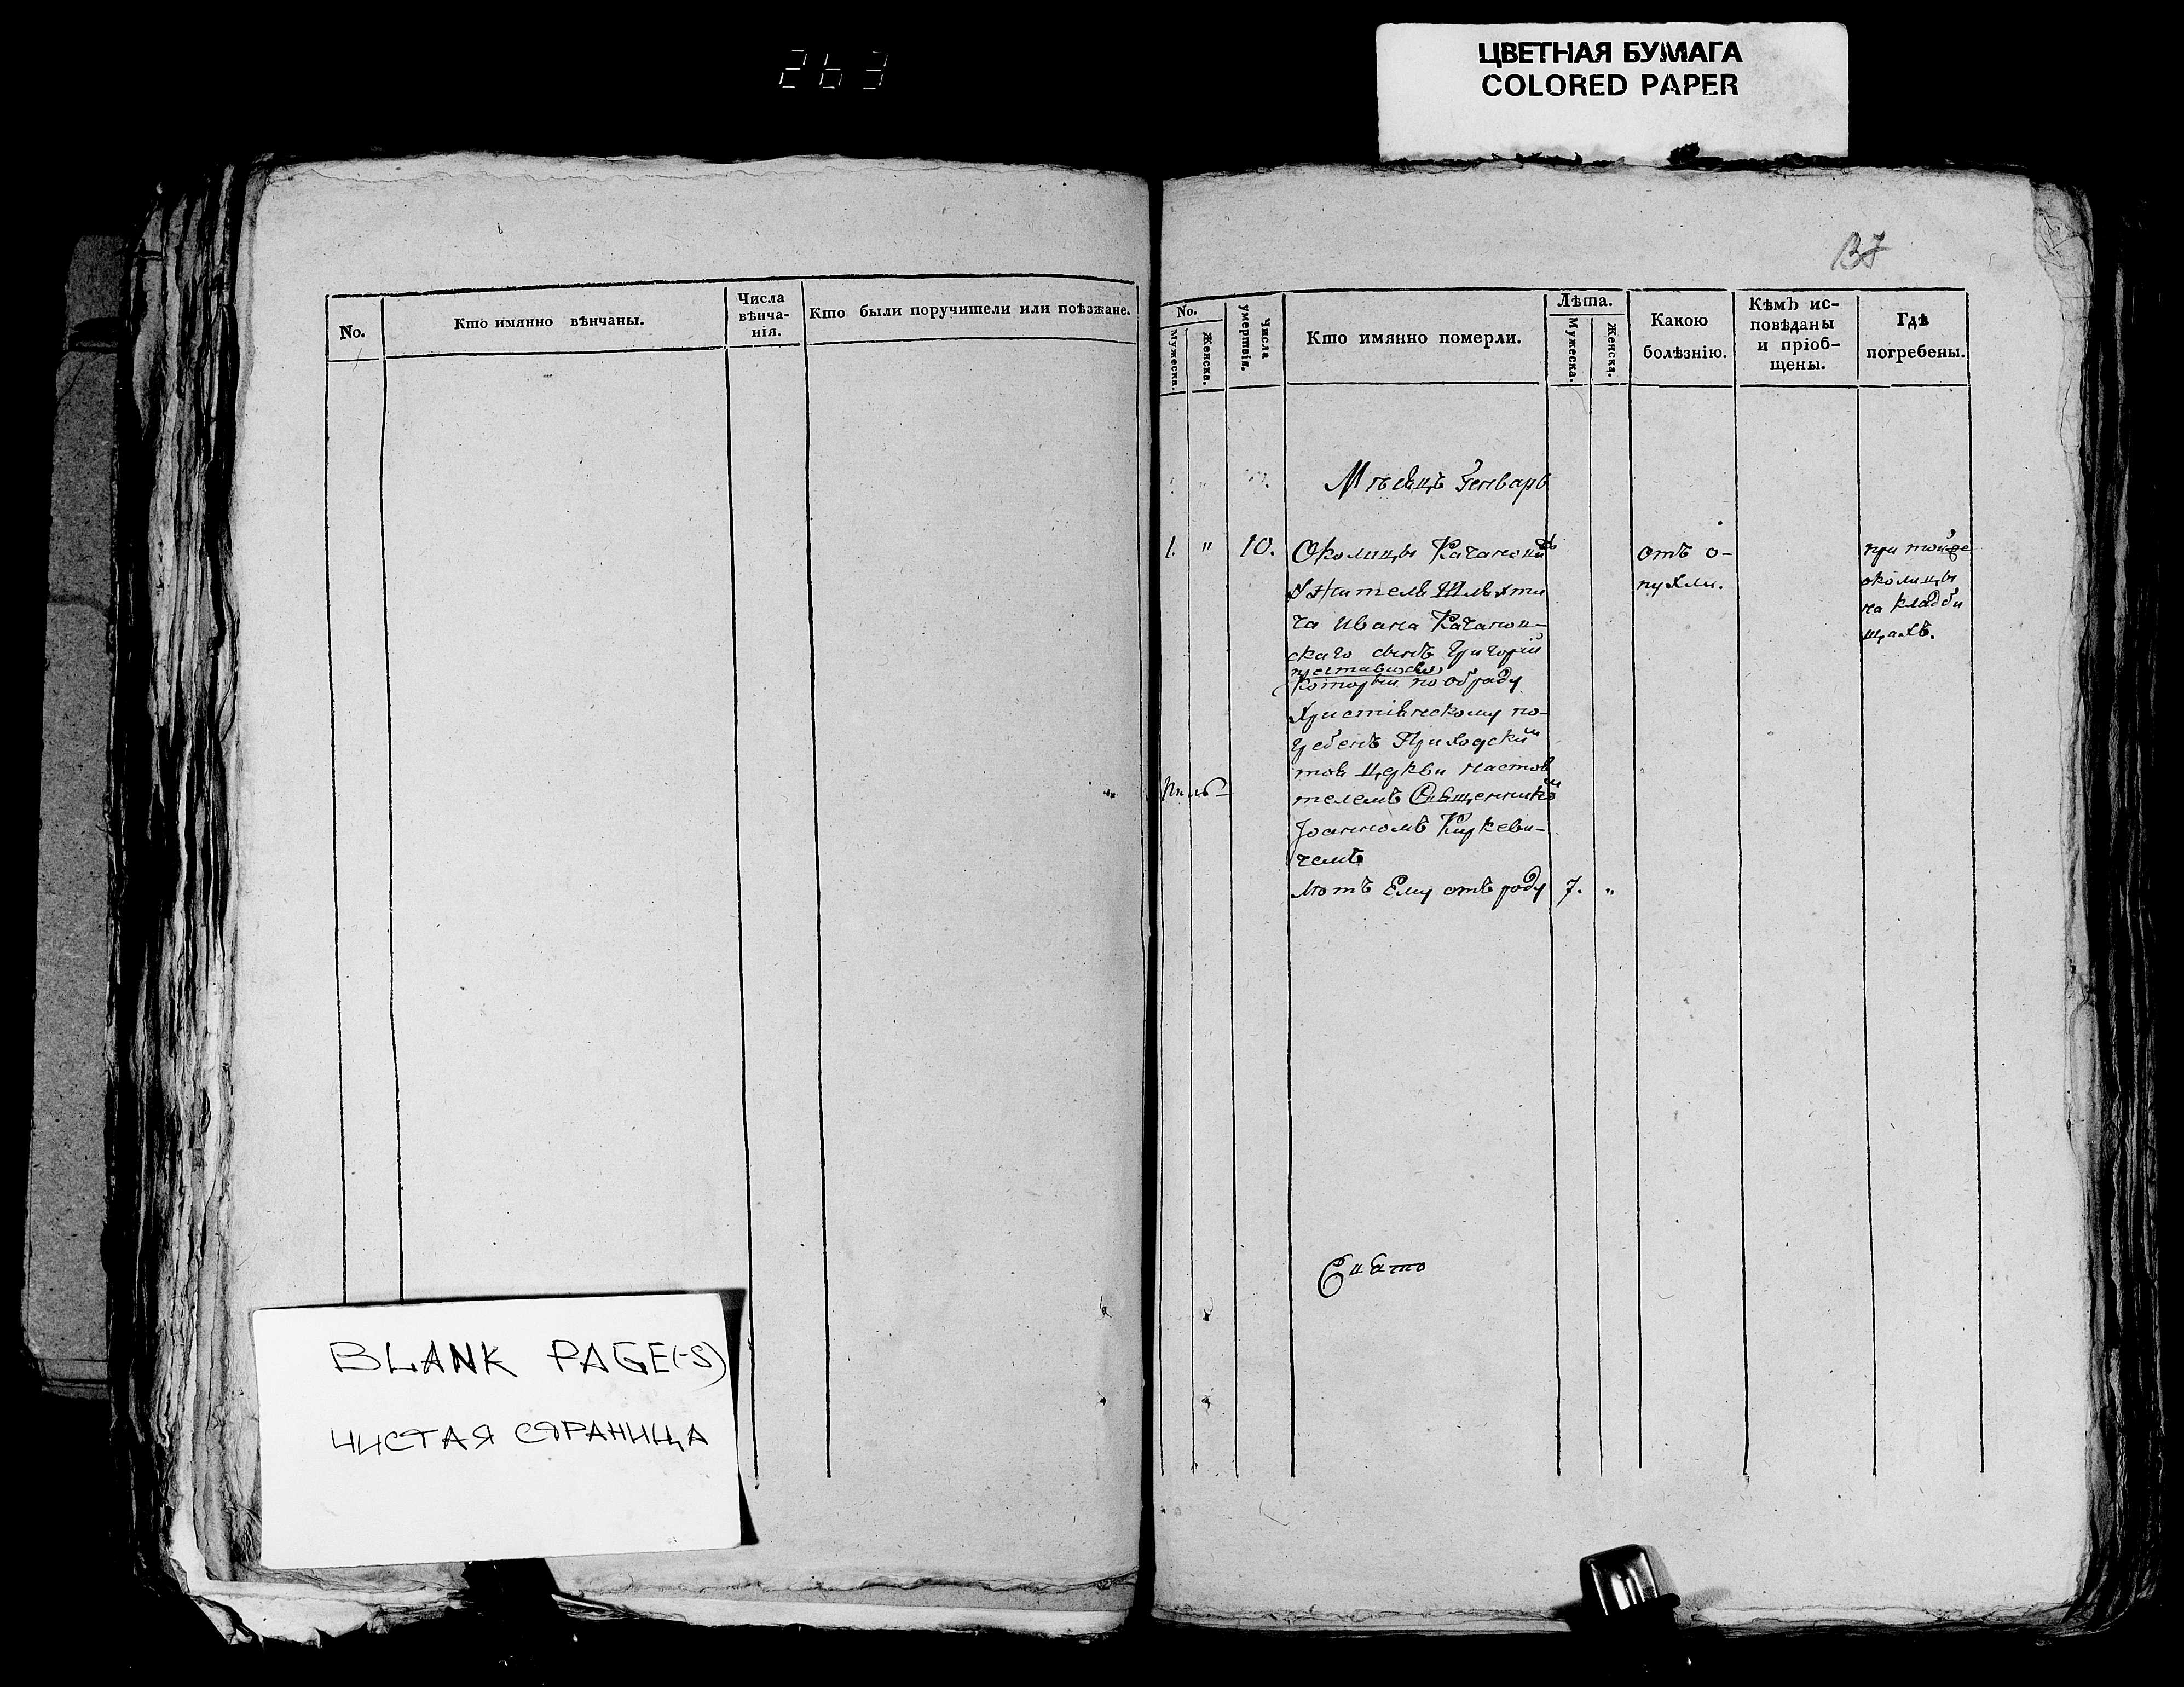 263
ЦВЕТНАЯ БУМАГА
COLORED PAPER
No.
Кто имянно вѣнчаны.
Числа
вѣнча-
нія.
Кто были поручители или поѣзжане.
BLANK PAGE(-S)
ЧИСТАЯ СТРАНИЦА
137
No.
Мужеска.
Женска.
Числа
умертвія.
Кто имянно померли.
Лѣта.
Мужеска.
Женска.
Какою
болѣзнію.
Кѣмъ ис-
повѣданы
и пріоб-
щены.
Гдѣ
погребены.
Мѣсяцъ Генварь
1. " 10. Околицы
жителя Шляхти
ча Ивана Качанов-
скаго сынъ Григорій
преставился
который по обряду
Христіанскому по-
гребенъ Приходским
той Церкви Настоя
телемъ Священником
Іоанномъ
чемъ
лѣтъ Ему отъ роду 7. "
отъ о-
пухли.
при тойже
околицы
на кладби
щахъ.